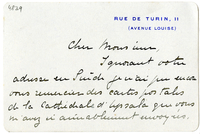 4829
RUE DE TURIN, 11
(AVENUE LOUISE)
Cher Monsieur,
Ignorant votre
adresse en Suède je n'ai pu encore
vous remercier des cartes postales
de la Cathédrale d'Upsala que vous
m'avez si aimablement envoyées.